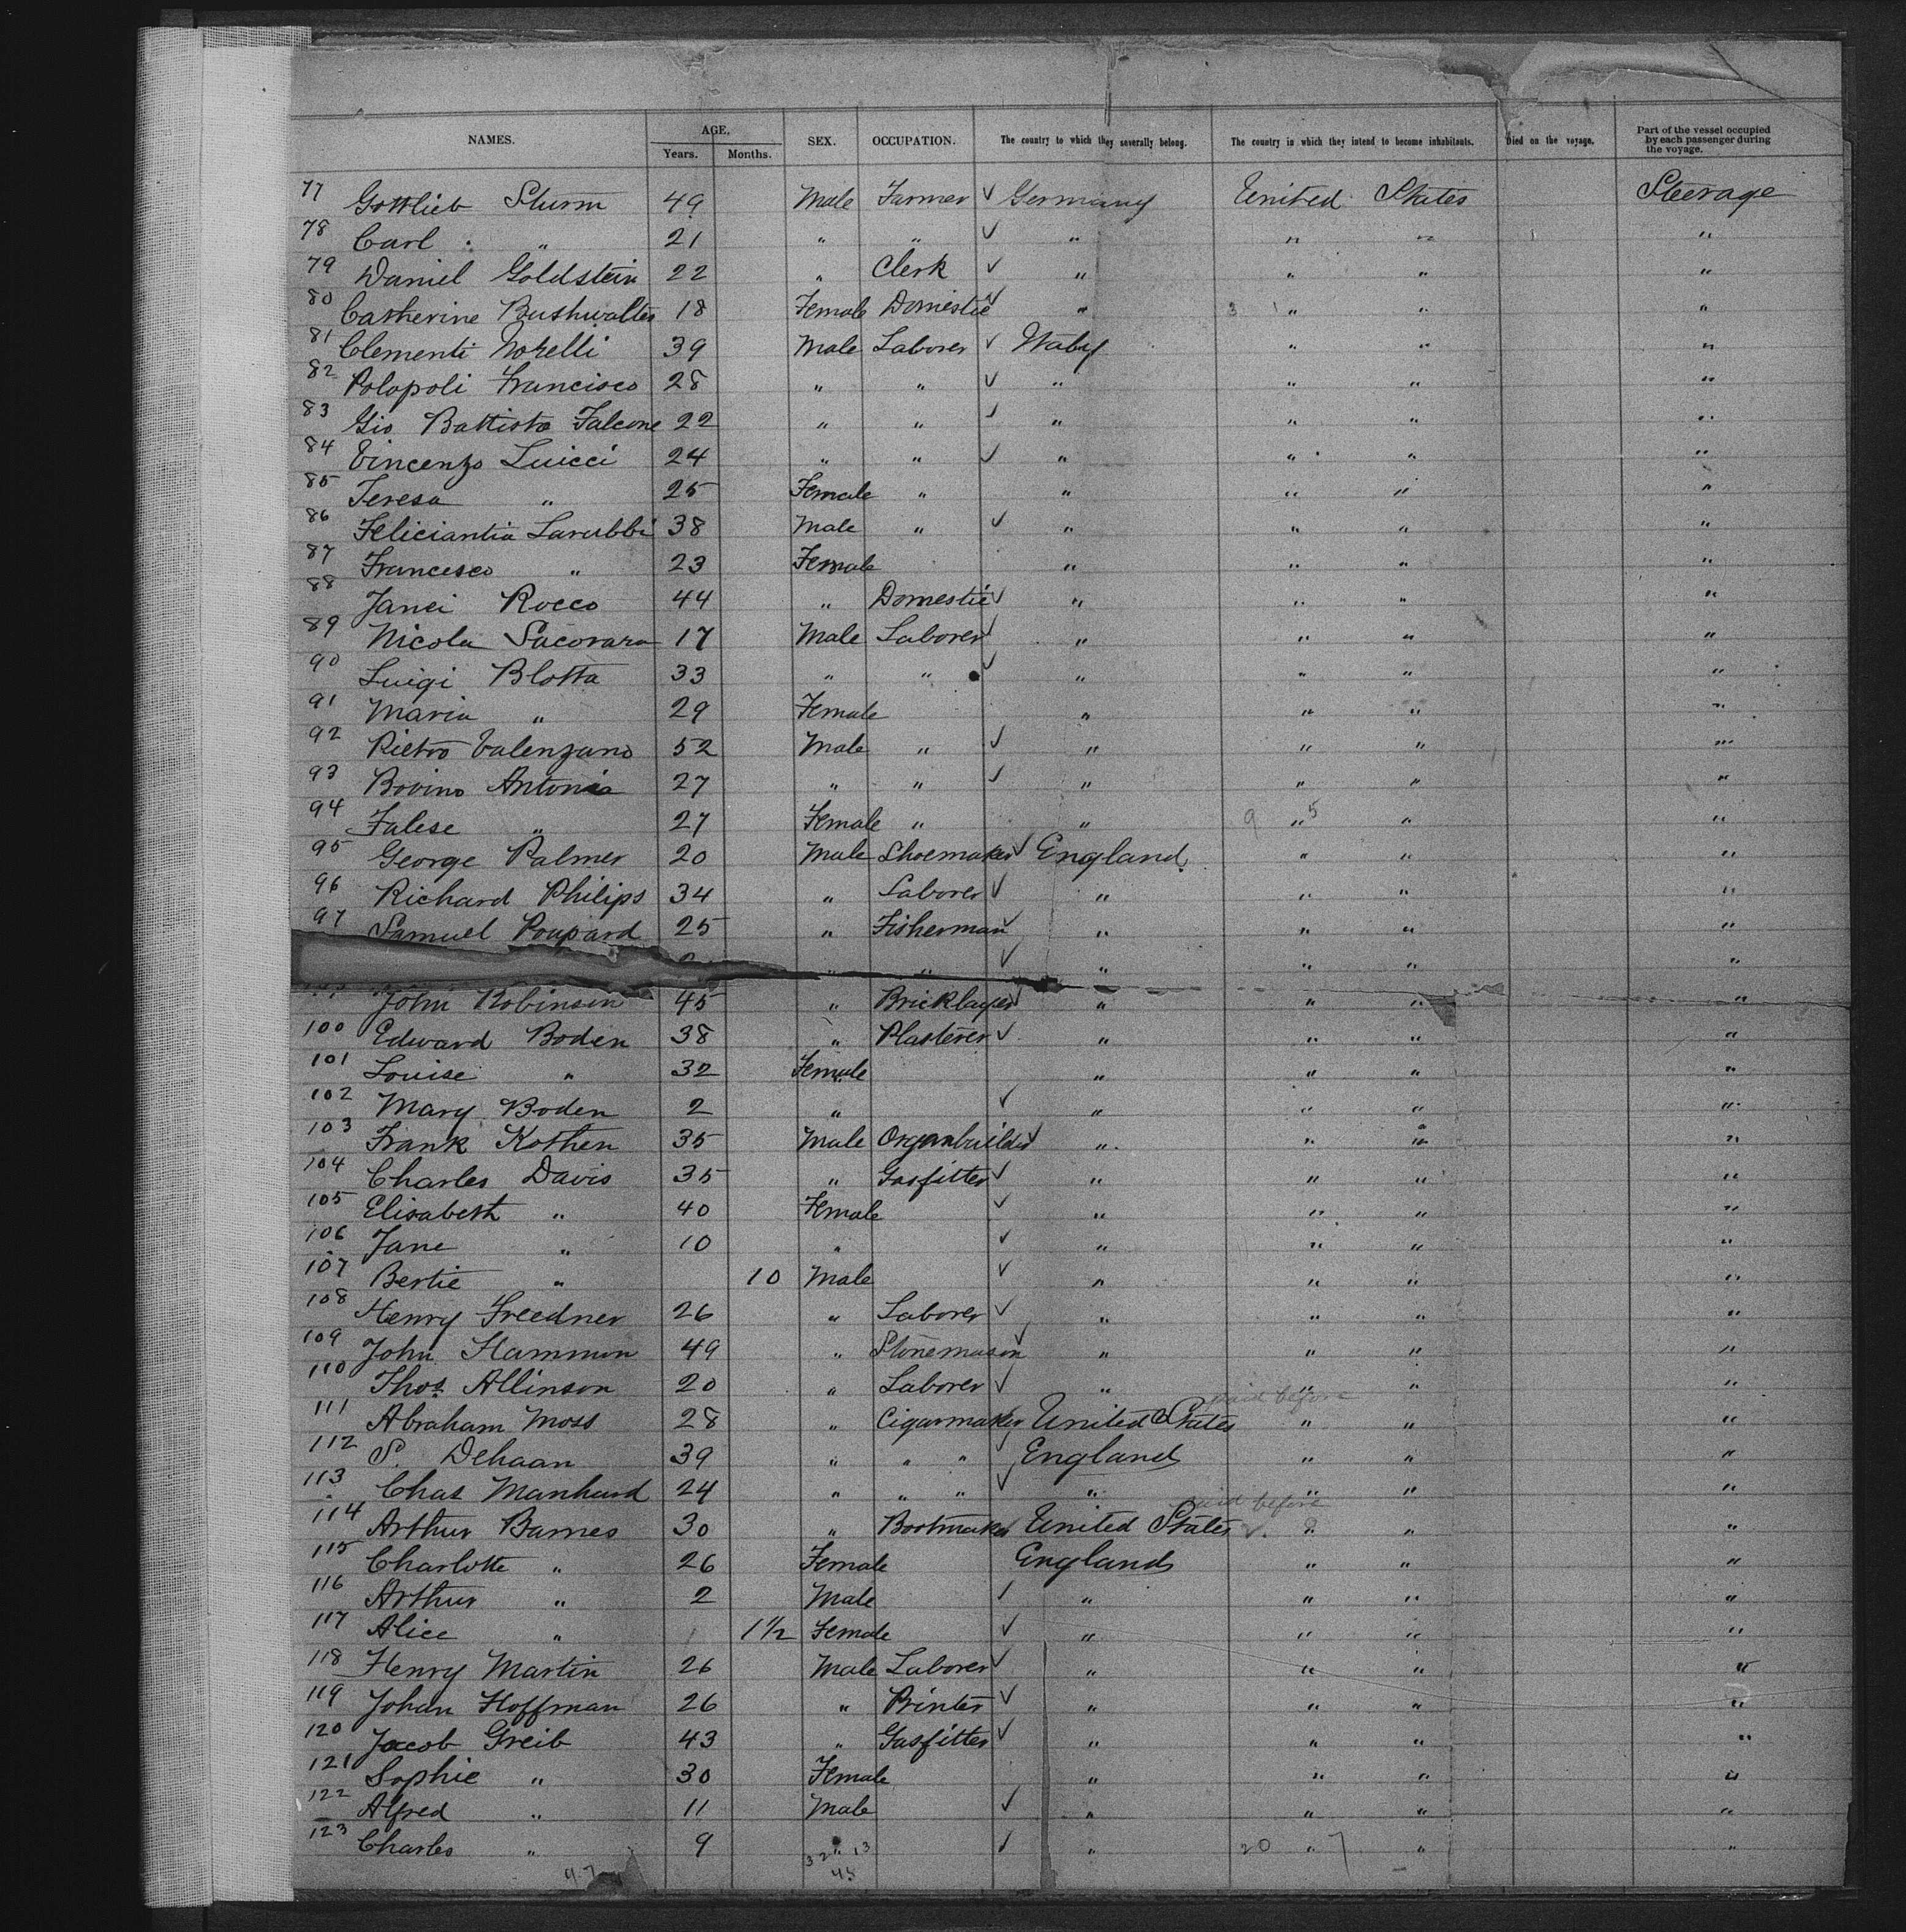 NAMES. AGE. SEX. OCCUPATION. The country to which they severally belong. The country in which they intend to become inhabitants. Died on the voyage. Part of the vessel occupied by each passenger during the voyage.
Years. Months.
77 Gottlieb Sturm 49 Male Farmer ✓ Germany United States Steerage
78 Carl " 21 " " ✓ " " " "
79 Daniel Goldstein 22 " Clerk ✓ " " " "
80 Catherine Bushwalter 18 Female Domestic ✓ " 3 1 " " "
81 Clementi Morelli 39 Male Laborer ✓ Italy " " "
82 Polopoli Francisco 28 " " ✓ " " " "
83 Gio Battista Falcone 22 " " ✓ " " " "
84 Vincenzo Luicci 24 " " ✓ " " " "
85 Teresa " 25 Female " " " " "
86 Feliciantia Larubbi 38 Male " ✓ " " " "
87 Francesco " 23 Female " " " "
88 Janei Rocco 44 " Domestic ✓ " " " "
89 Nicola Sacovara 17 Male Laborer ✓ " " " "
90 Luigi Blotta 33 " " ✓ " " " "
91 Maria " 29 Female " " " "
92 Pietro Valenzano 52 Male " ✓ " " " "
93 Bovino Antonia 27 " " ✓ " " " "
94 Falese " 27 Female " " 9 5 " " "
95 George Palmer 20 Male Shoemaker ✓ England " " "
96 Richard Philips 34 " Laborer ✓ " " " "
97 Samuel Poupard 25 " Fisherman ✓ " " " "
" " ✓ " " " "
John Robinson 45 " Bricklayer ✓ " " " "
100 Edward Boden 38 " Plasterer ✓ " " " "
101 Louise " 32 Female " " " "
102 Mary Boden 2 " ✓ " " " "
103 Frank Kothen 35 Male Organbuilder ✓ " " " "
104 Charles Davis 35 " Gasfitter ✓ " " " "
105 Elisabeth " 40 Female ✓ " " " "
106 Jane " 10 " ✓ " " " "
107 Bertie " 10 Male ✓ " " " "
108 Henry Freedner 26 " Laborer ✓ " " " "
109 John Hammon 49 " Stonemason ✓ " " " "
110 Thos Allinson 20 " Laborer ✓ " " " "
paid before
111 Abraham Moss 28 " Cigarmaker United States " " "
112 S. Dehaan 39 " " " ✓ England " " "
113 Chas Manhard 24 " " " ✓ " " " "
paid before
114 Arthur Barnes 30 " Bootmaker United States ✓ " " "
115 Charlotte " 26 Female England " " "
116 Arthur " 2 Male ✓ " " " "
117 Alice " 1 1/2 Female ✓ " " " "
118 Henry Martin 26 Male Laborer ✓ " " " "
119 Johan Hoffman 26 " Printer ✓ " " " "
120 Jacob Greib 43 " Gasfitter ✓ " " " "
121 Sophie " 30 Female " " " "
122 Alfred " 11 Male ✓ " " " "
123 Charles " 9 " ✓ " 20 " 7 " "
32 13
97 45